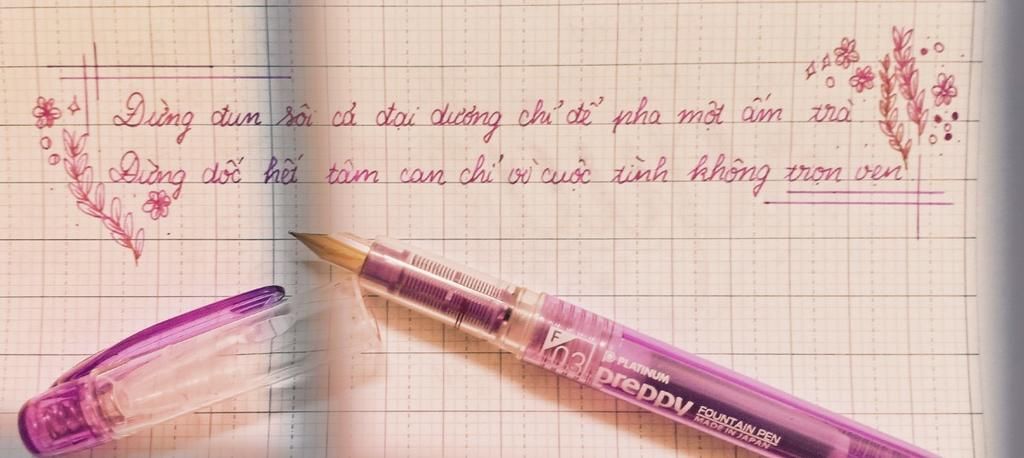 Đừng đun sôi cả đại dương chỉ để pha một ấm trà
Đừng dốc hết tâm can chỉ vì cuộc tình không trọn vẹn
F
03
PLATINUM
preppy
FOUNTAIN PEN
MADE IN JAPAN